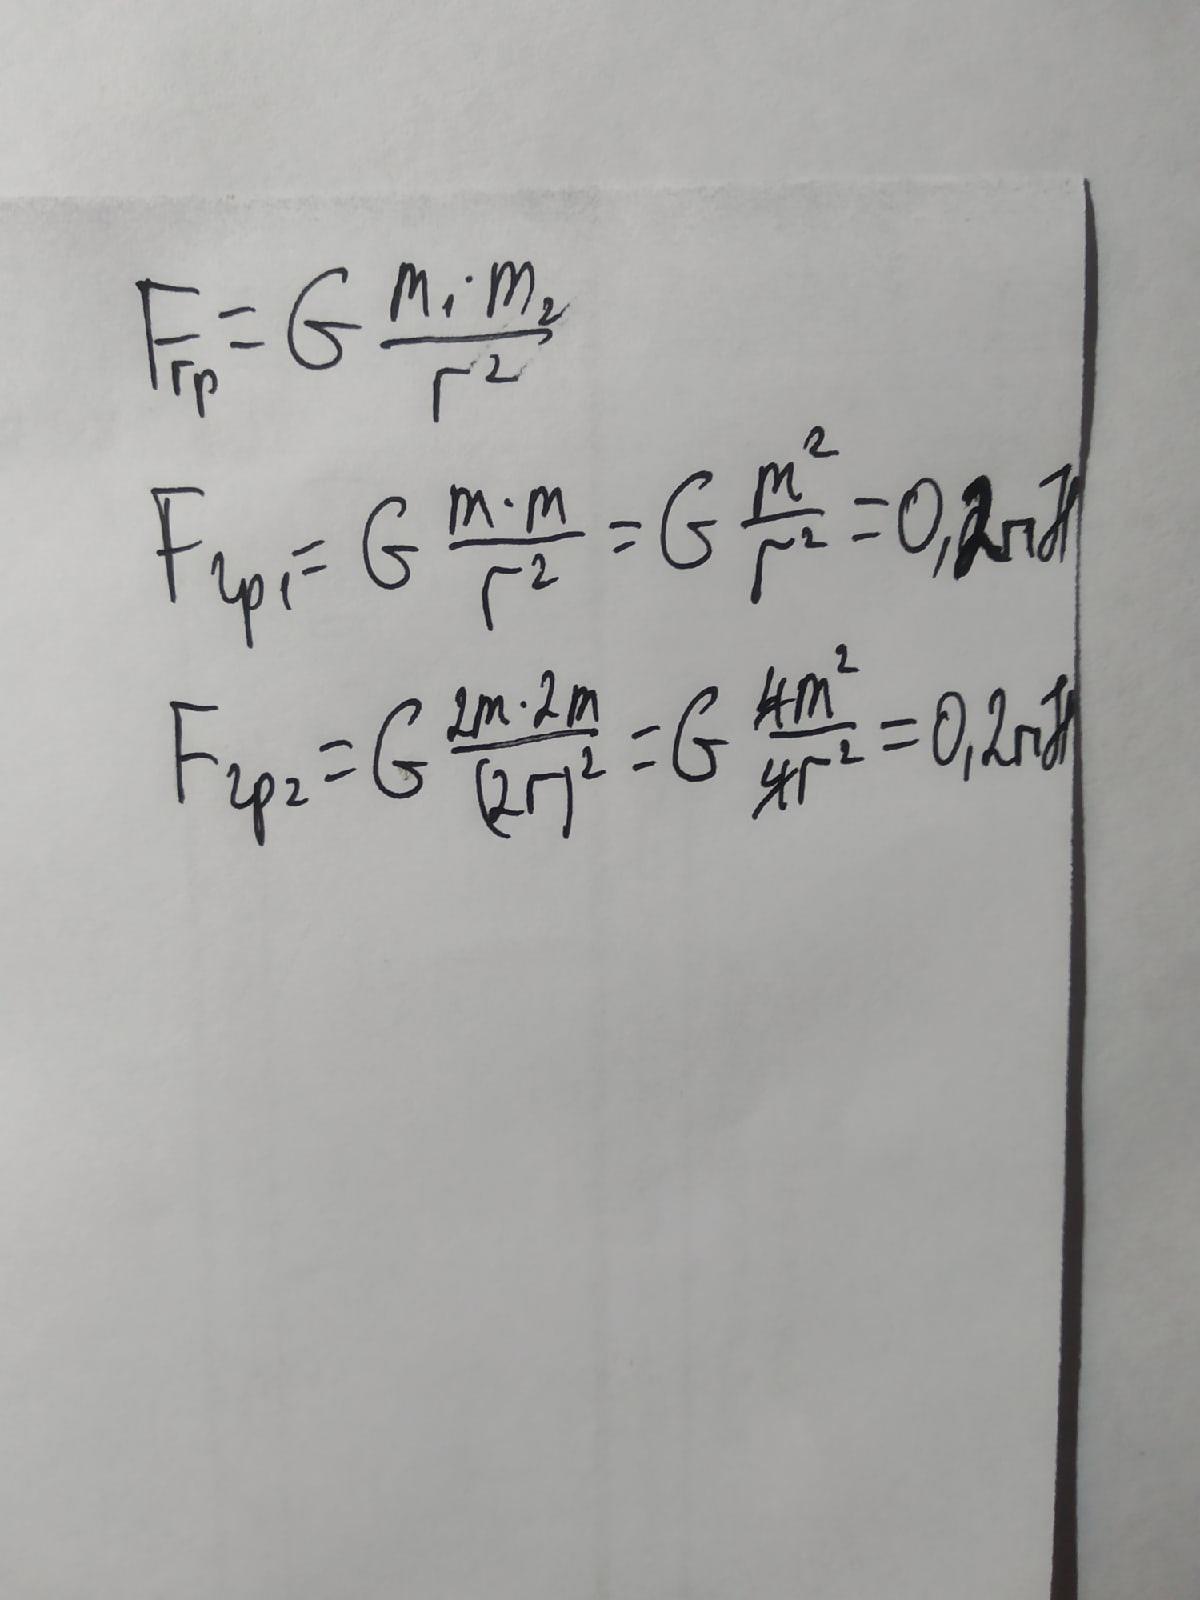 Fгр = G m₁·m₂/r²
Fгр₁ = G m·m/r² = G m²/r² = 0,2 пН
Fгр₂ = G 2m·2m/(2r)² = G 4m²/4r² = 0,2 пН